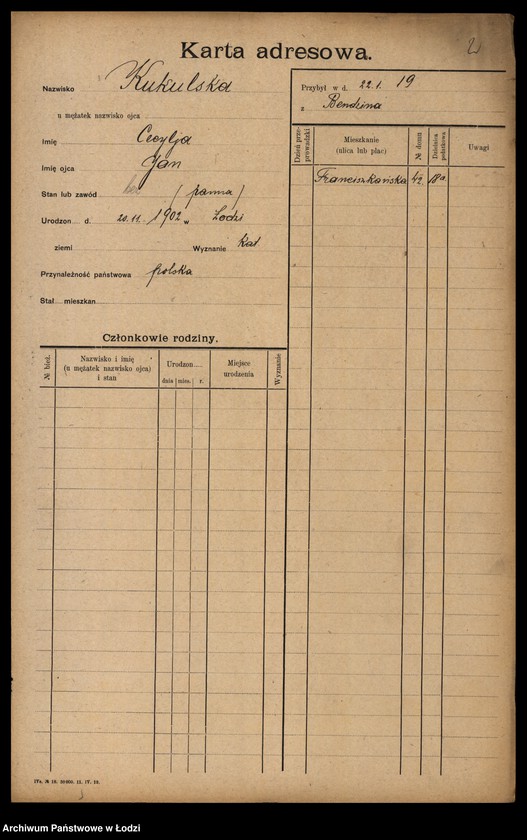 Karta adresowa.
2
Nazwisko Kukulska
u mężatek nazwisko ojca
Imię Cecylja
Imię ojca Jan
Stan lub zawód bez (panna)
Urodzon d. 20.11. 1902 w Łodzi
ziemi Wyznanie Kat
Przynależność państwowa polska
Stał. mieszkan
Przybył w d. 22.1. 19
z Bendzina
Dzień przeprowadzki
Mieszkanie
(ulica lub plac)
№ domu
Dzielnica podatkowa
Uwagi
Franciszkańska 42 18a
Członkowie rodziny.
№ bież.
Nazwisko i imię
(u mężatek nazwisko ojca)
i stan
Urodzon
dnia mies. r.
Miejsce
urodzenia
Wyznanie
Archiwum Państwowe w Łodzi